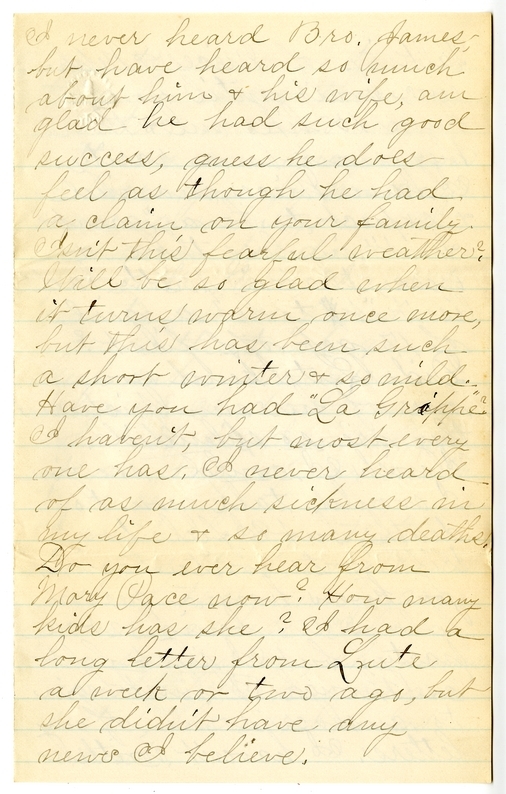 I never heard Bro. James-
but have heard so much
about him & his wife, am
glad he had such good
success, guess he does
feel as though he had
a claim on your family.
Isn't this fearful weather?
Will be so glad when
it turns warm once more,
but this has been such
a short winter & so mild.
Have you had "La Grippe"?
I haven't, but most every
one has. I never heard
of as much sickness in
my life & so many deaths.
Do you ever hear from
Mary Pace now? How many
kids has she? I had a
long letter from Lute
a week or two ago, but
she didn't have any
news I believe.